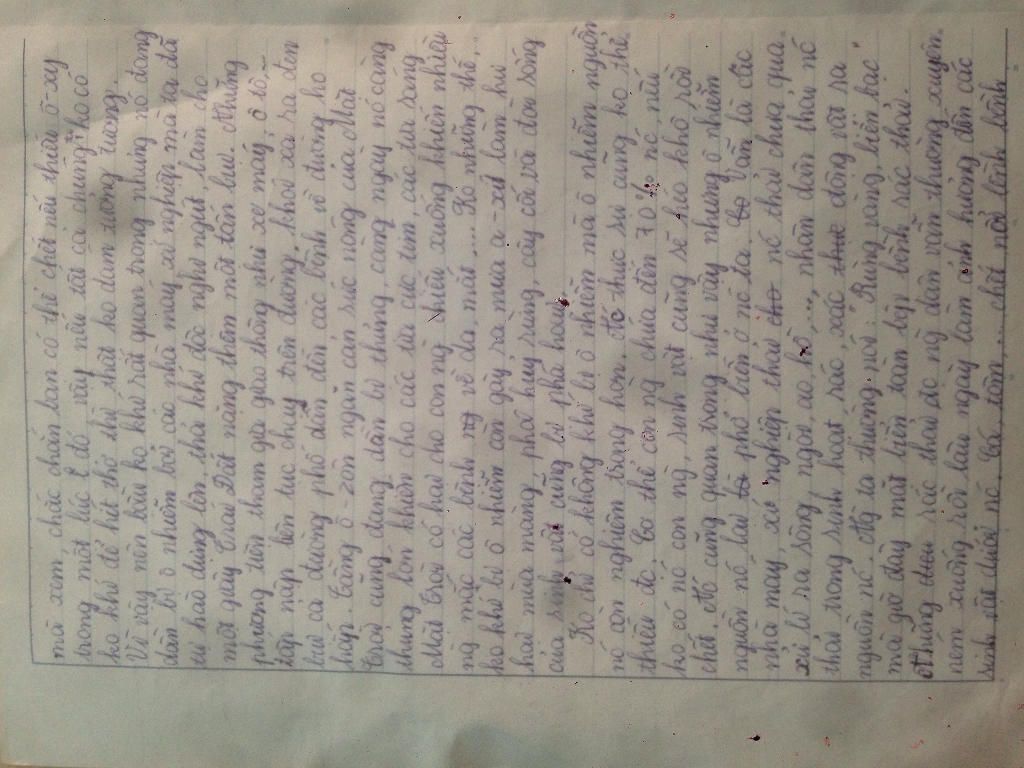 mà xem chắc chắn bạn có thể chết nếu thiếu ô-xy
trong một lúc & đó vậy nếu tất cả chúng ta ko có
ko khí để hít thở thì thật ko dám tưởng tượng.
Vì vậy nên bầu ko khí rất quan trọng nhưng nó đang
dần bị ô nhiễm bởi các nhà máy, xí nghiệp mà ta đã
tự hào dựng lên, thải khí độc nghi ngút, làm cho
một quầy Trái Đất nặng thêm một tấn bụi. Những
phương tiện tham gia giao thông như xe máy, ô tô,...
tấp nập liên tục chạy trên đường, khói xả ra đen
bụi cả đường phố dẫn đến các bệnh về đường hô
hấp. Tầng ô-zôn ngăn cản sức nóng của Mặt
Trời cũng đang dần bị thủng, càng ngày nó càng
thủng lớn khiến cho các tia cực tím, các tia sáng
Mặt Trời có hại cho con ng chiếu xuống khiến nhiều
ng mắc các bệnh về da, mắt... Ko những thế,
ko khí bị ô nhiễm còn gây ra mưa a-xít làm hư
hại mùa màng, phá huỷ rừng, cây cối và đời sống
của sinh vật cũng bị phá hoại.
Ko chỉ có không khí bị ô nhiễm mà ô nhiễm nguồn
nó còn nghiêm trọng hơn. Ko thức sự cũng ko thể
thiếu đc. Cơ thể con ng chứa đến 70% nó, nếu
ko có nó con ng, sinh vật cũng sẽ héo khô rồi
chết. Nó cũng quan trọng như vậy nhưng ô nhiễm
nguồn nó lại phổ biến ở nó ta. Vẫn là các
nhà máy, xí nghiệp thải nó thải chưa qua
xử lí ra sông ngòi, ao hồ,..., nhân dân thải nó
thải trong sinh hoạt, rác, xác động vật ra
nguồn nó. Ng ta thường nói "Rừng vàng, biển bạc"
mà giờ đây mặt biển toàn lớp bệnh rác thải.
Những rác thải do ng dân vẫn thường xuyên
ném xuống rồi lâu ngày làm ảnh hưởng đến các
sinh vật dưới nó. Cá, tôm,... chết nổi lềnh bềnh